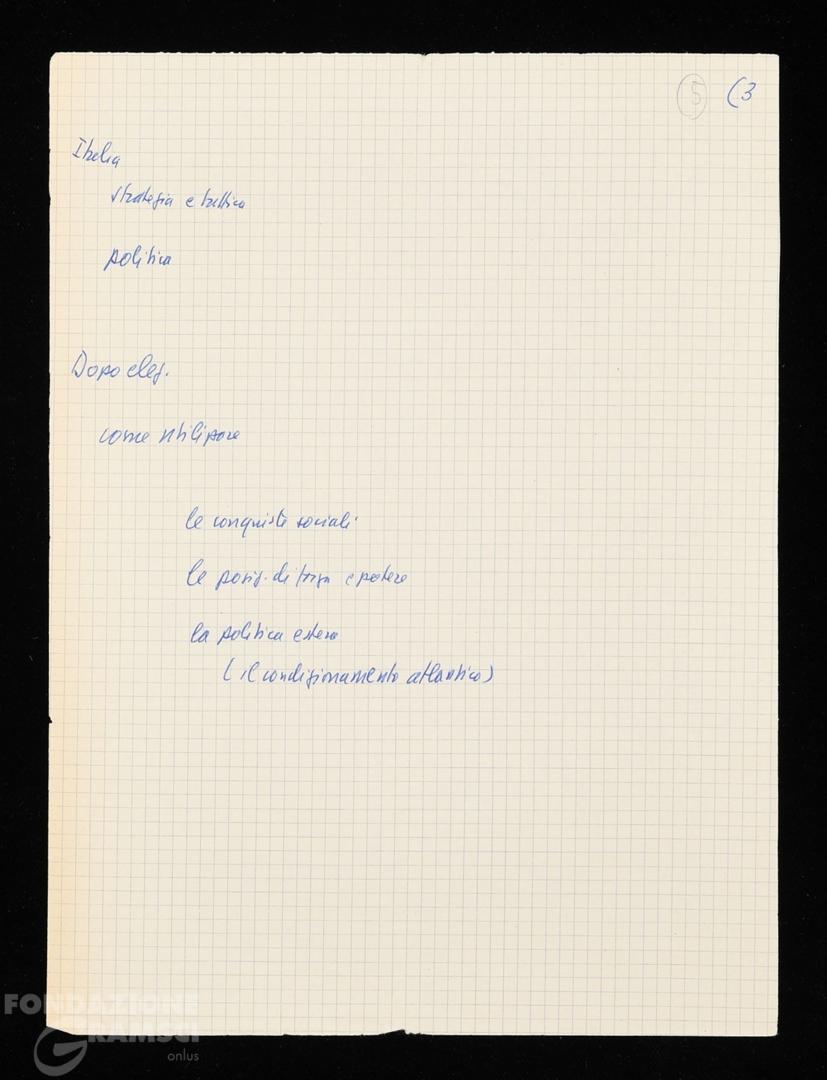 5 (3
Italia
strategia e tattica
politica
Dopo elez.
come utilizzare
le conquiste sociali
le posiz. di forza e potere
la politica estera
(il condizionamento atlantico)
FONDAZIONE
GRAMSCI
onlus